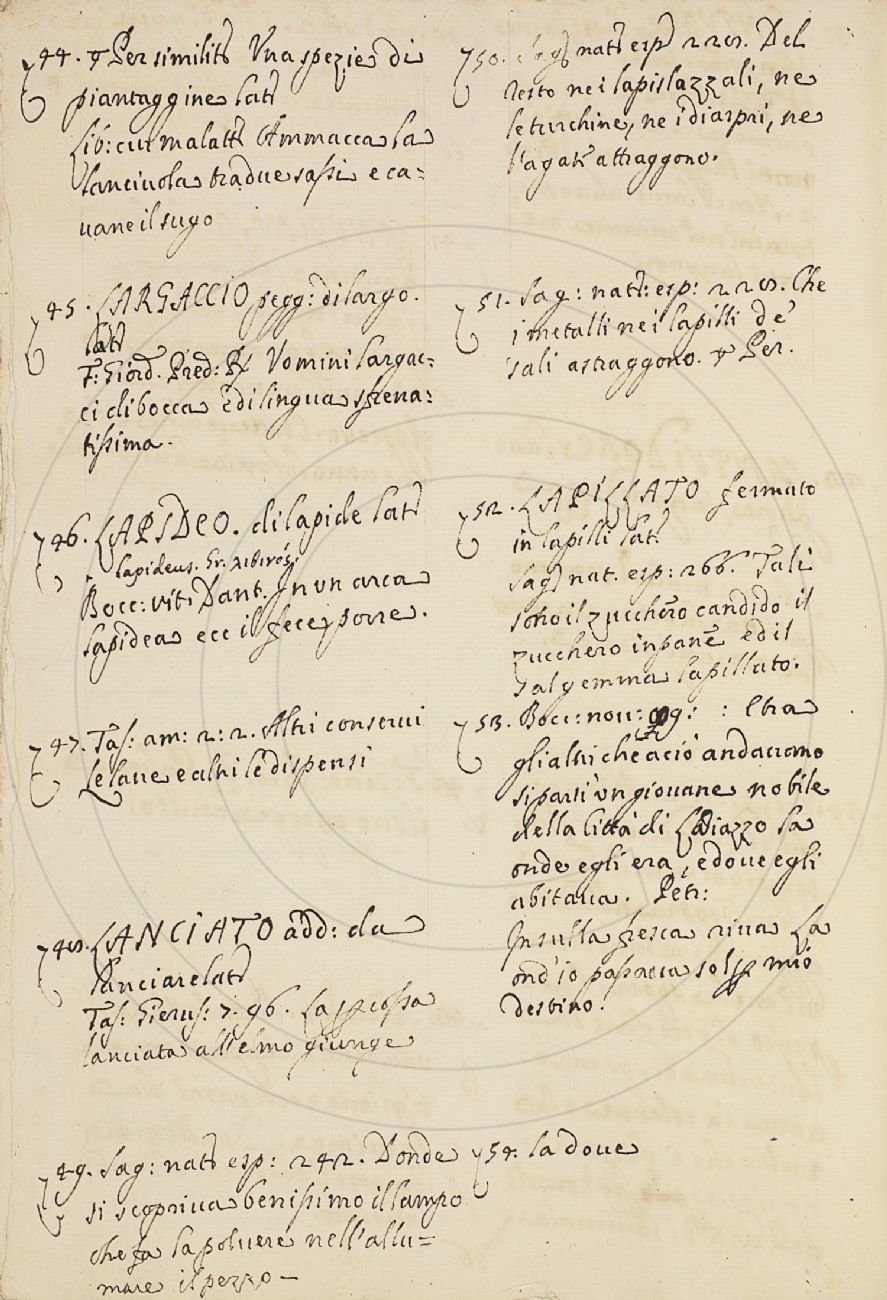 44. ☿ Per similit. Una spezie di
piantaggine lat.
Lib: cur malatt. Ammacca la
lanciuola tra due sassi e ca=
vane il sugo
45. LARGACCIO pegg: di largo.
lat.
F: Giord. Pred: R. Uomini largac=
ci di bocca e di lingua sfrena=
tissima.
46. LAPIDEO. di lapide lat.
lapideus. Gr.
Bocc: vit. Dant. In un arca
lapidea ecc il fece porre.
47. Tas: am: 2: 2. Altri conservi
le lane e altri le dispensi
48. LANCIATO add: da
lanciare lat.
Tas: Gierus: 7. 96. La percossa
lanciata all'elmo giunge
49. Sag: nat. esp: 242. Donde
si scopriva benissimo il lampo
che fa la polvere nell'allu=
mare il pezzo —
50. Sag. nat. esp. 228. Del
resto ne i lapislazzali, ne
le turchine, ne i diaspri, ne
l'agate attraggono.
51. Sag: nat: esp: 228. Che
i metalli ne i lapilli de'
sali astraggono. ☿ Per.
52. LAPILLATO fermato
in lapilli lat.
Sag. nat. esp: 266. Tali
sono il zucchero candido il
zucchero in pane ed il
salgemma lapillato.
53. Bocc: nov: 98: : Etra
gli altri che acio andarono
si parti un giovane nobile
della citta di Laiazzo la
onde egli era, e dove egli
abitava. Petr:
In sulla fresca riva La
ond'io passava sol per mio
destino.
54. la dove